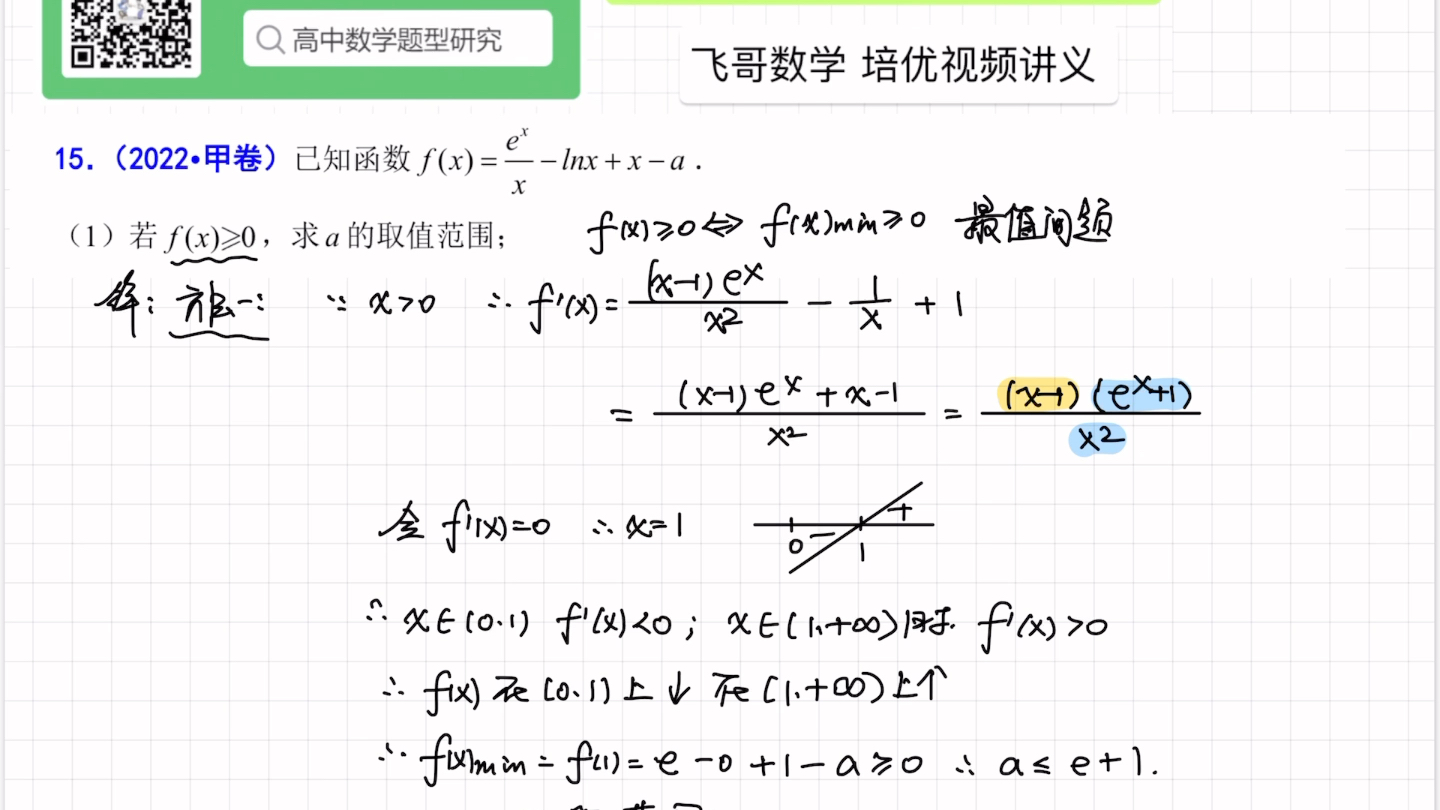 高中数学题型研究
飞哥数学 培优视频讲义
15.（2022•甲卷）已知函数 f(x) = e^x/x − lnx + x − a .
（1）若 f(x)⩾0，求 a 的取值范围； f(x)≥0 ⇔ f(x)min≥0 最值问题
解：方法一： ∵ x>0 ∴ f'(x) = (x-1)e^x/x² − 1/x + 1
= ((x-1)e^x + x-1)/x² = (x-1)(e^x+1)/x²
令 f'(x)=0 ∴ x=1 0 − 1 +
∴ x∈(0.1) f'(x)<0 ; x∈(1,+∞)时. f'(x)>0
∴ f(x) 在(0.1)上↓ 在(1.+∞)上个
∴ f(x)min = f(1) = e −0 +1−a ≥0 ∴ a ≤ e+1.